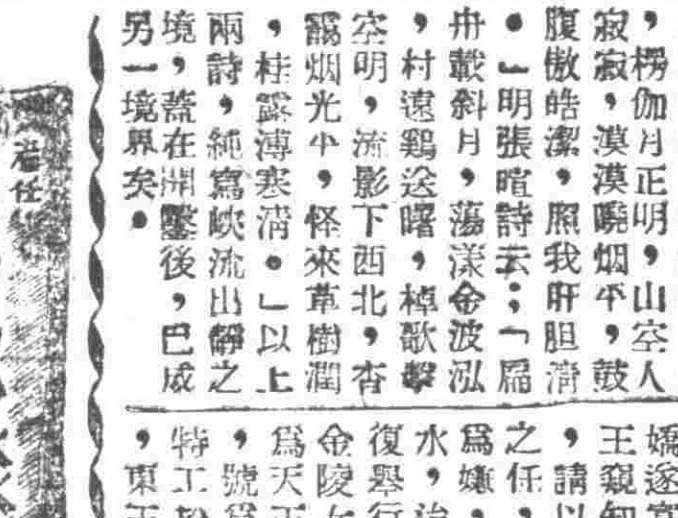 ，楞伽月正明，山空人
寂寂，漠漠曉烟平，鼓
腹傲皓潔，照我肝胆清
。」明張暄詩云：「扁
舟載斜月，蕩漾金波泓
，村遠鷄送曙，棹歌擊
空明，流影下西北，杳
靄烟光平，怪來草樹潤
，桂露溥寒清。」以上
兩詩，純寫峽流出靜之
境，蓋在開鑿後，已成
另一境界矣。
嬌遂
王窺知
，請以
之任，
爲孃，
水，
復舉行
金陵
爲天王
，號爲
特工
，東王
任